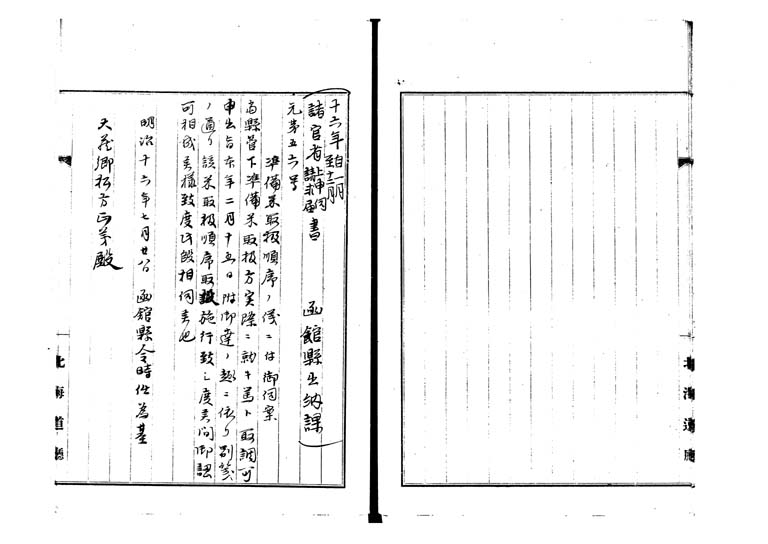 十六年自一月至十二月
諸官省上申伺請求届書　函館縣出納課
元第五六号
準備米取扱順序ノ儀ニ付御伺案
當縣管下準備米取扱方実際ニ就キ篤ト取調可
申出旨本年二月十五日附御達ノ趣ニ依リ別冊
ノ通リ該米取扱順序取設施行致シ度候間御認
可相成候様致度此段相伺候也
明治十六年七月廿 函館縣令時任為基
大蔵卿松方正義殿
北海道廳
北海道廳